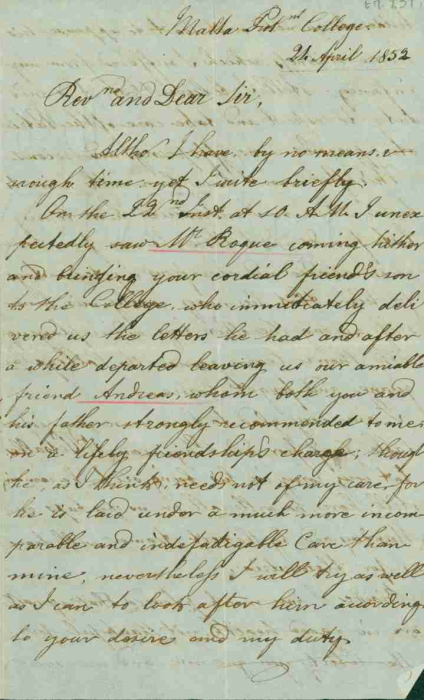 Malta Prot.nt College.
24 April 1852
Rev.nd and Dear Sir,
Altho' I have, by no means e-
nough time, yet I write briefly.
On the 22nd Inst. at 10. A.M. I unex
pectedly saw Mr. Roque coming hither
and bringing your cordial friend's son
to the College, who immitiately deli
verd us the letters he had and after
a while departed leaving us our amiable
friend Andreas, whom both you and
his father strongly recommended to me
on a lifely friendship's charge; though
he, as I think, needs not of my care, for
he is laid under a much more incom
parable and indefatigable Care than
mine, nevertheless I will try as well
as I can to look after him according
to your desire and my duty.